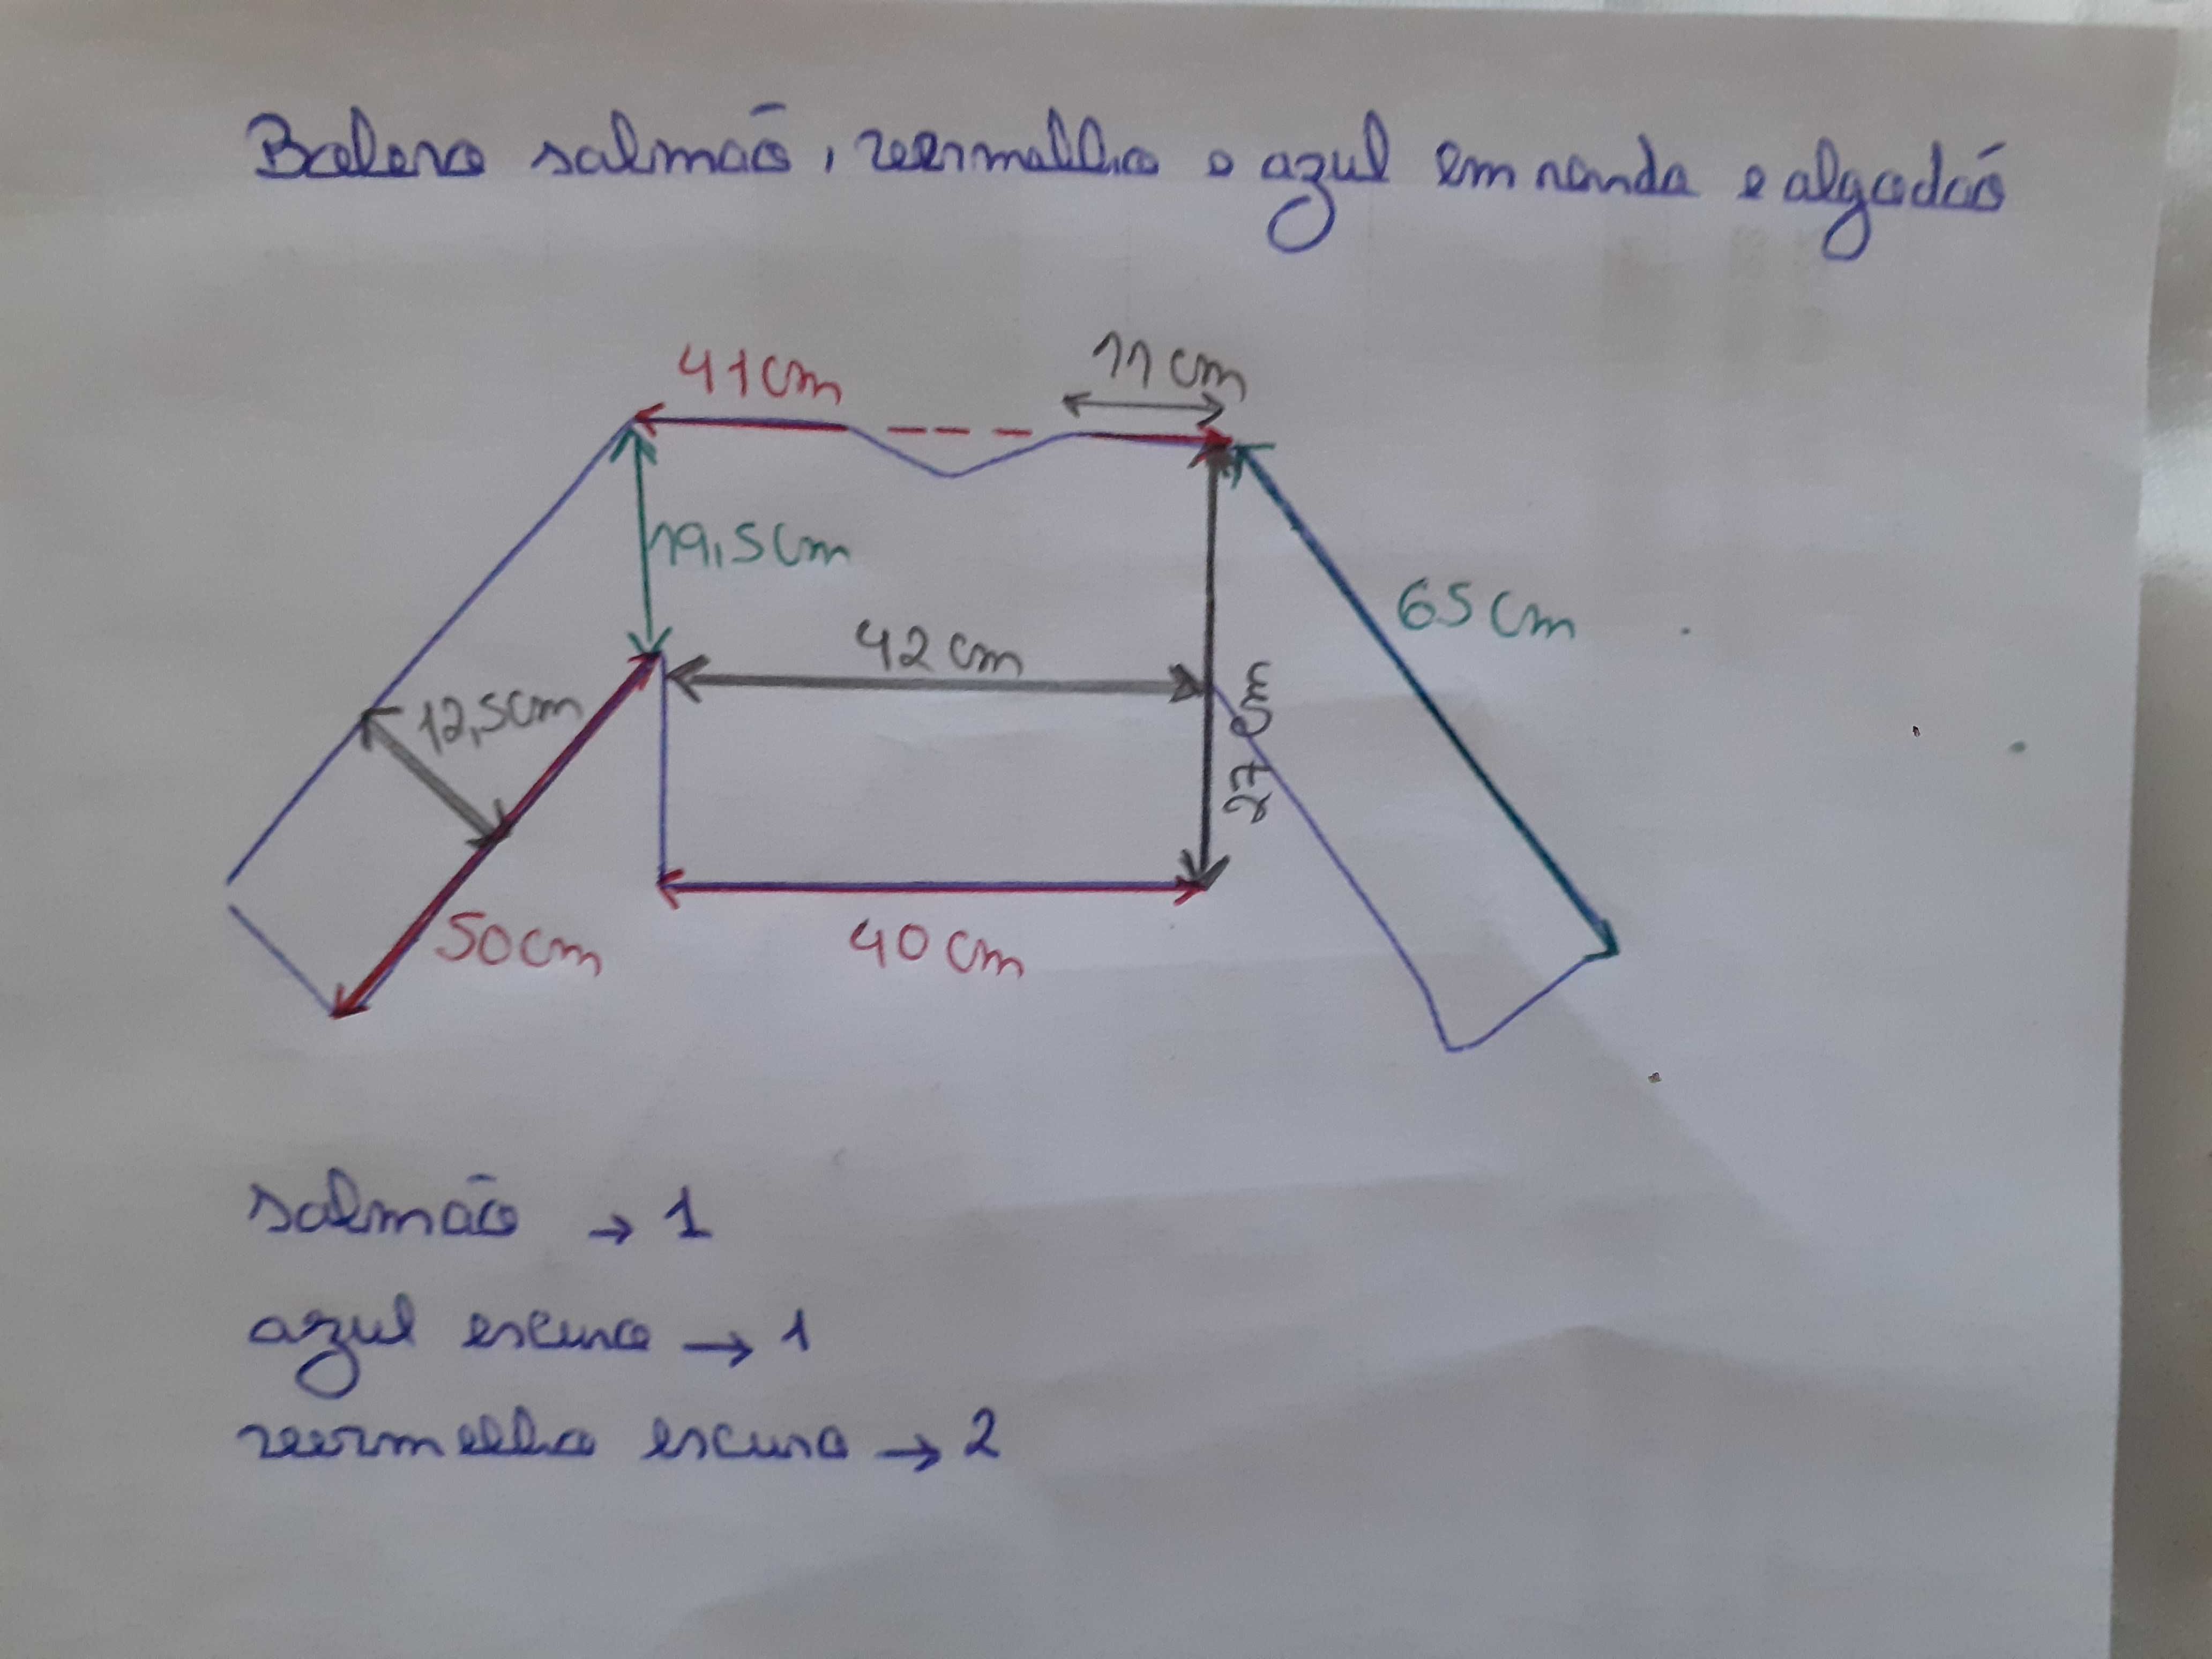 Bolero salmão, vermelho e azul em renda e algodão
41cm
11cm
19,5cm
65cm
42cm
12,5cm
27cm
50cm
40cm
salmão → 1
azul escuro → 1
vermelho escuro → 2